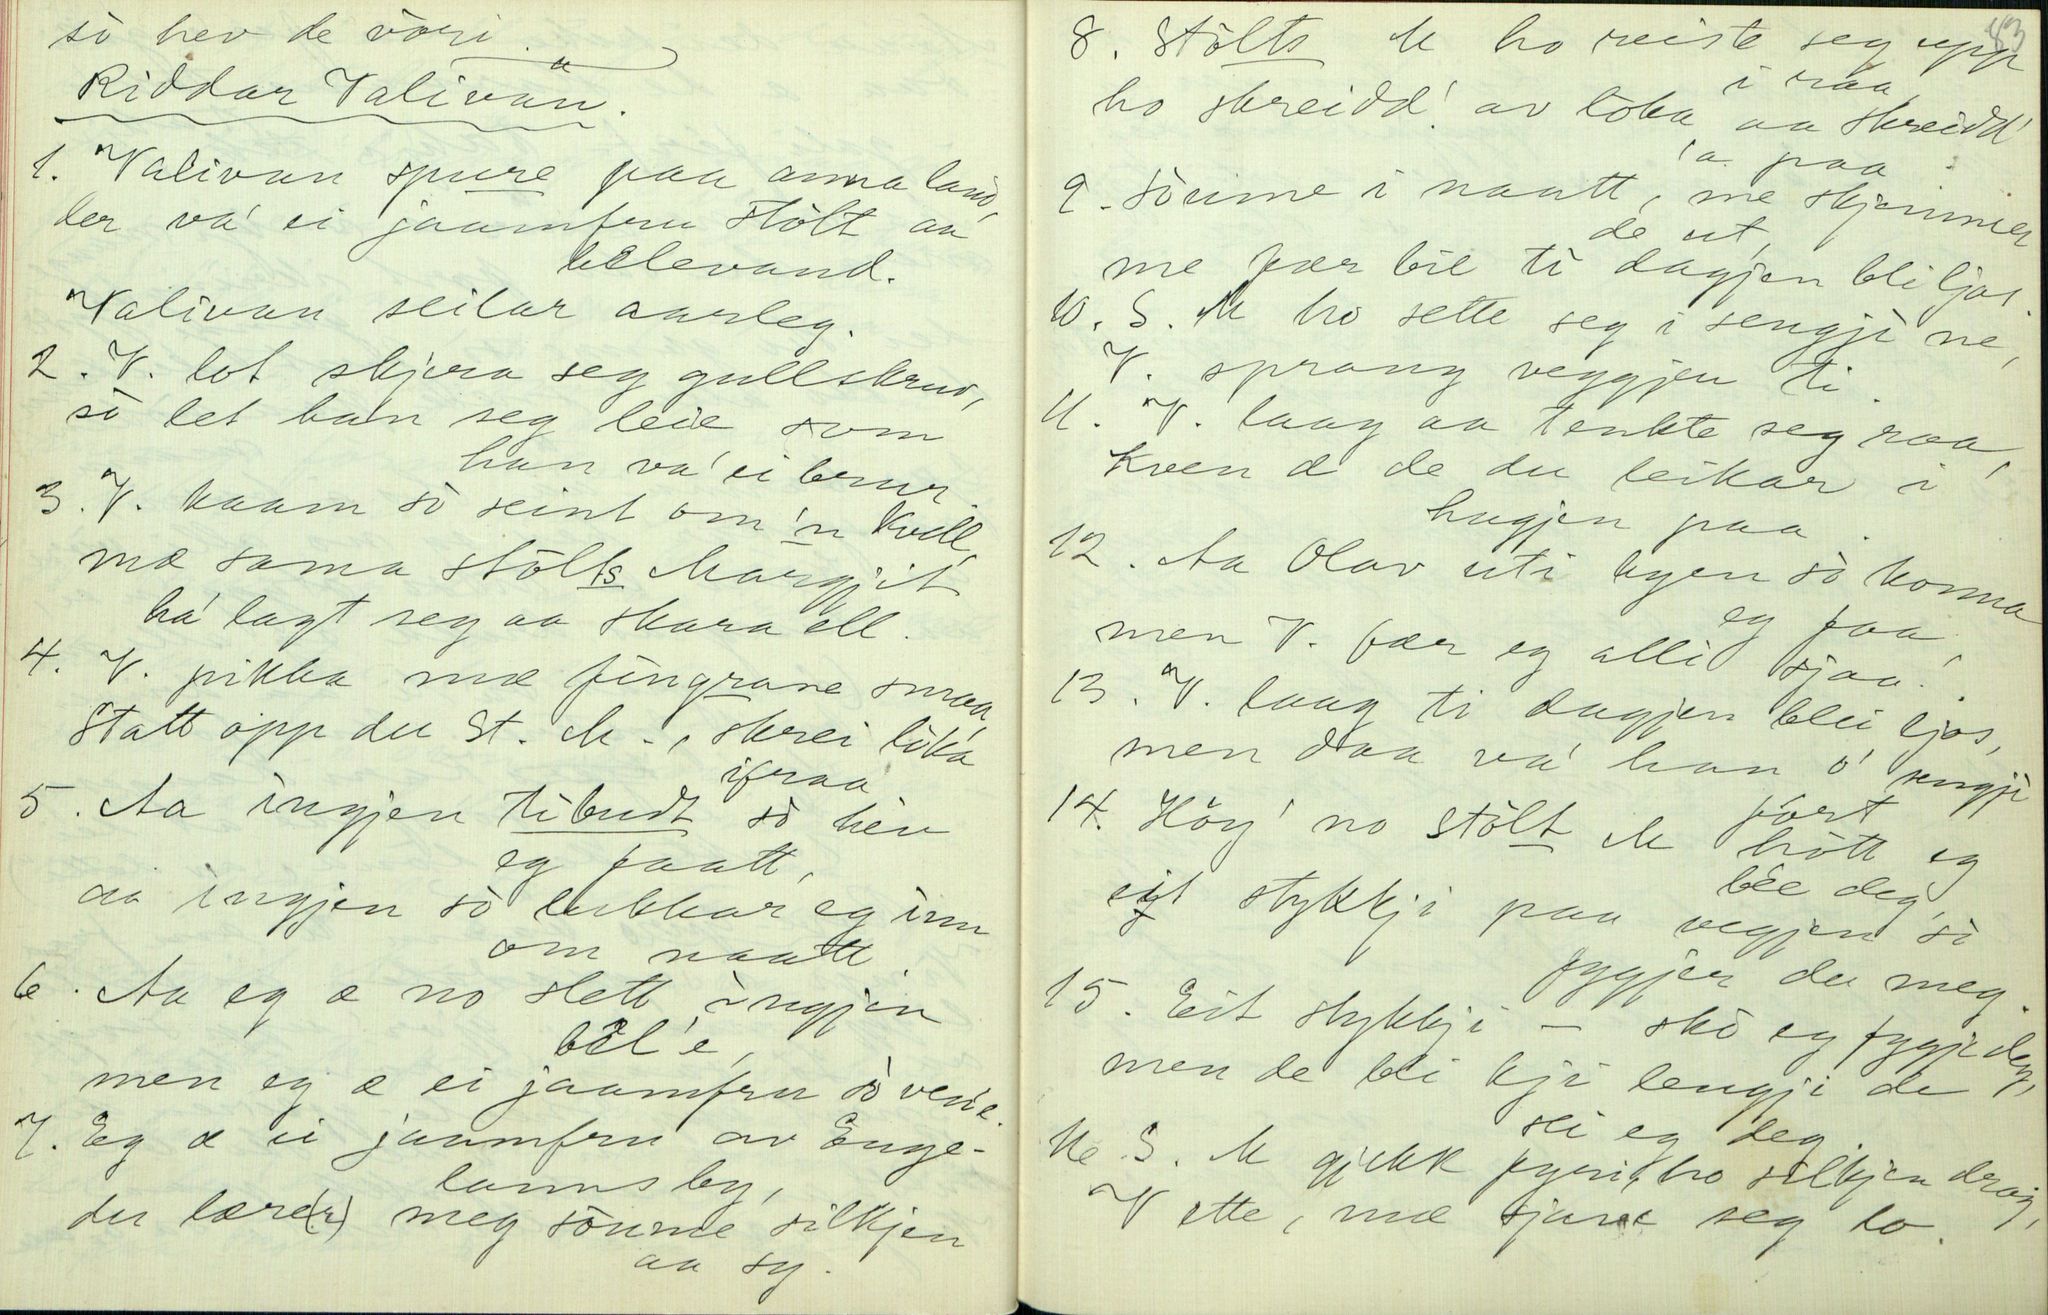 sò hev de vòri.
Riddar Valivan.
1. Valivan spure paa anna land,
der va' ei jaamfru stòlt aa
belevand.
Valivan seilar aarleg.
2. V. lot skjera seg gullskrud,
sò let han seg leie som
han va' ei brur.
3. V. kaam sò seint om 'n kvell,
mæ sama stòlts Margjit
ha' lagt seg aa skara ell.
4. V. pikka mæ fingrane smaa
Statt opp du St. M., skrei lòka
ifraa
5. Aa ingjen tibudt sò hev
eg faatt,
aa ingjen sò lukkar eg inn
om naatt
6. Aa eg æ no slett ingjen
bèl'e,
men eg æ ei jaamfru sò ven'e.
7. Eg æ ei jaamfru av Enge-
lanns by,
du lære(r) meg sòume silkjen
aa sy.
83
8. Stòlts M ho reiste seg upp
i raa,
ho skreidd' av lòka aa skreidd'
'a paa.
9. Sòume i naatt, me skjemmer
de ut,
me fær bie ti dagjen bli ljos
10. S. M ho sette seg i sengji ne,
V. sprang veggjen ti.
11. V. laag aa tenkte seg raa,
Kven æ de du leikar i
hugjen paa.
12. Aa Olav uti byen sò komma
eg faa,
men V. fær eg alli sjaa.
13. V. laag ti dagjen blei ljos,
men daa va' han ò sengji
fòrt
14. Høy' no stòlt M hòtt eg
bèe deg,
eit stykkji paa vegjen sò
fygjer du meg.
15. Eit stykkji – skò eg fygje deg,
men de bli kji lengji de
sei eg deg.
16 S. M gjekk fyri, ho silkjen drog,
V ette, mæ sjave seg lo.